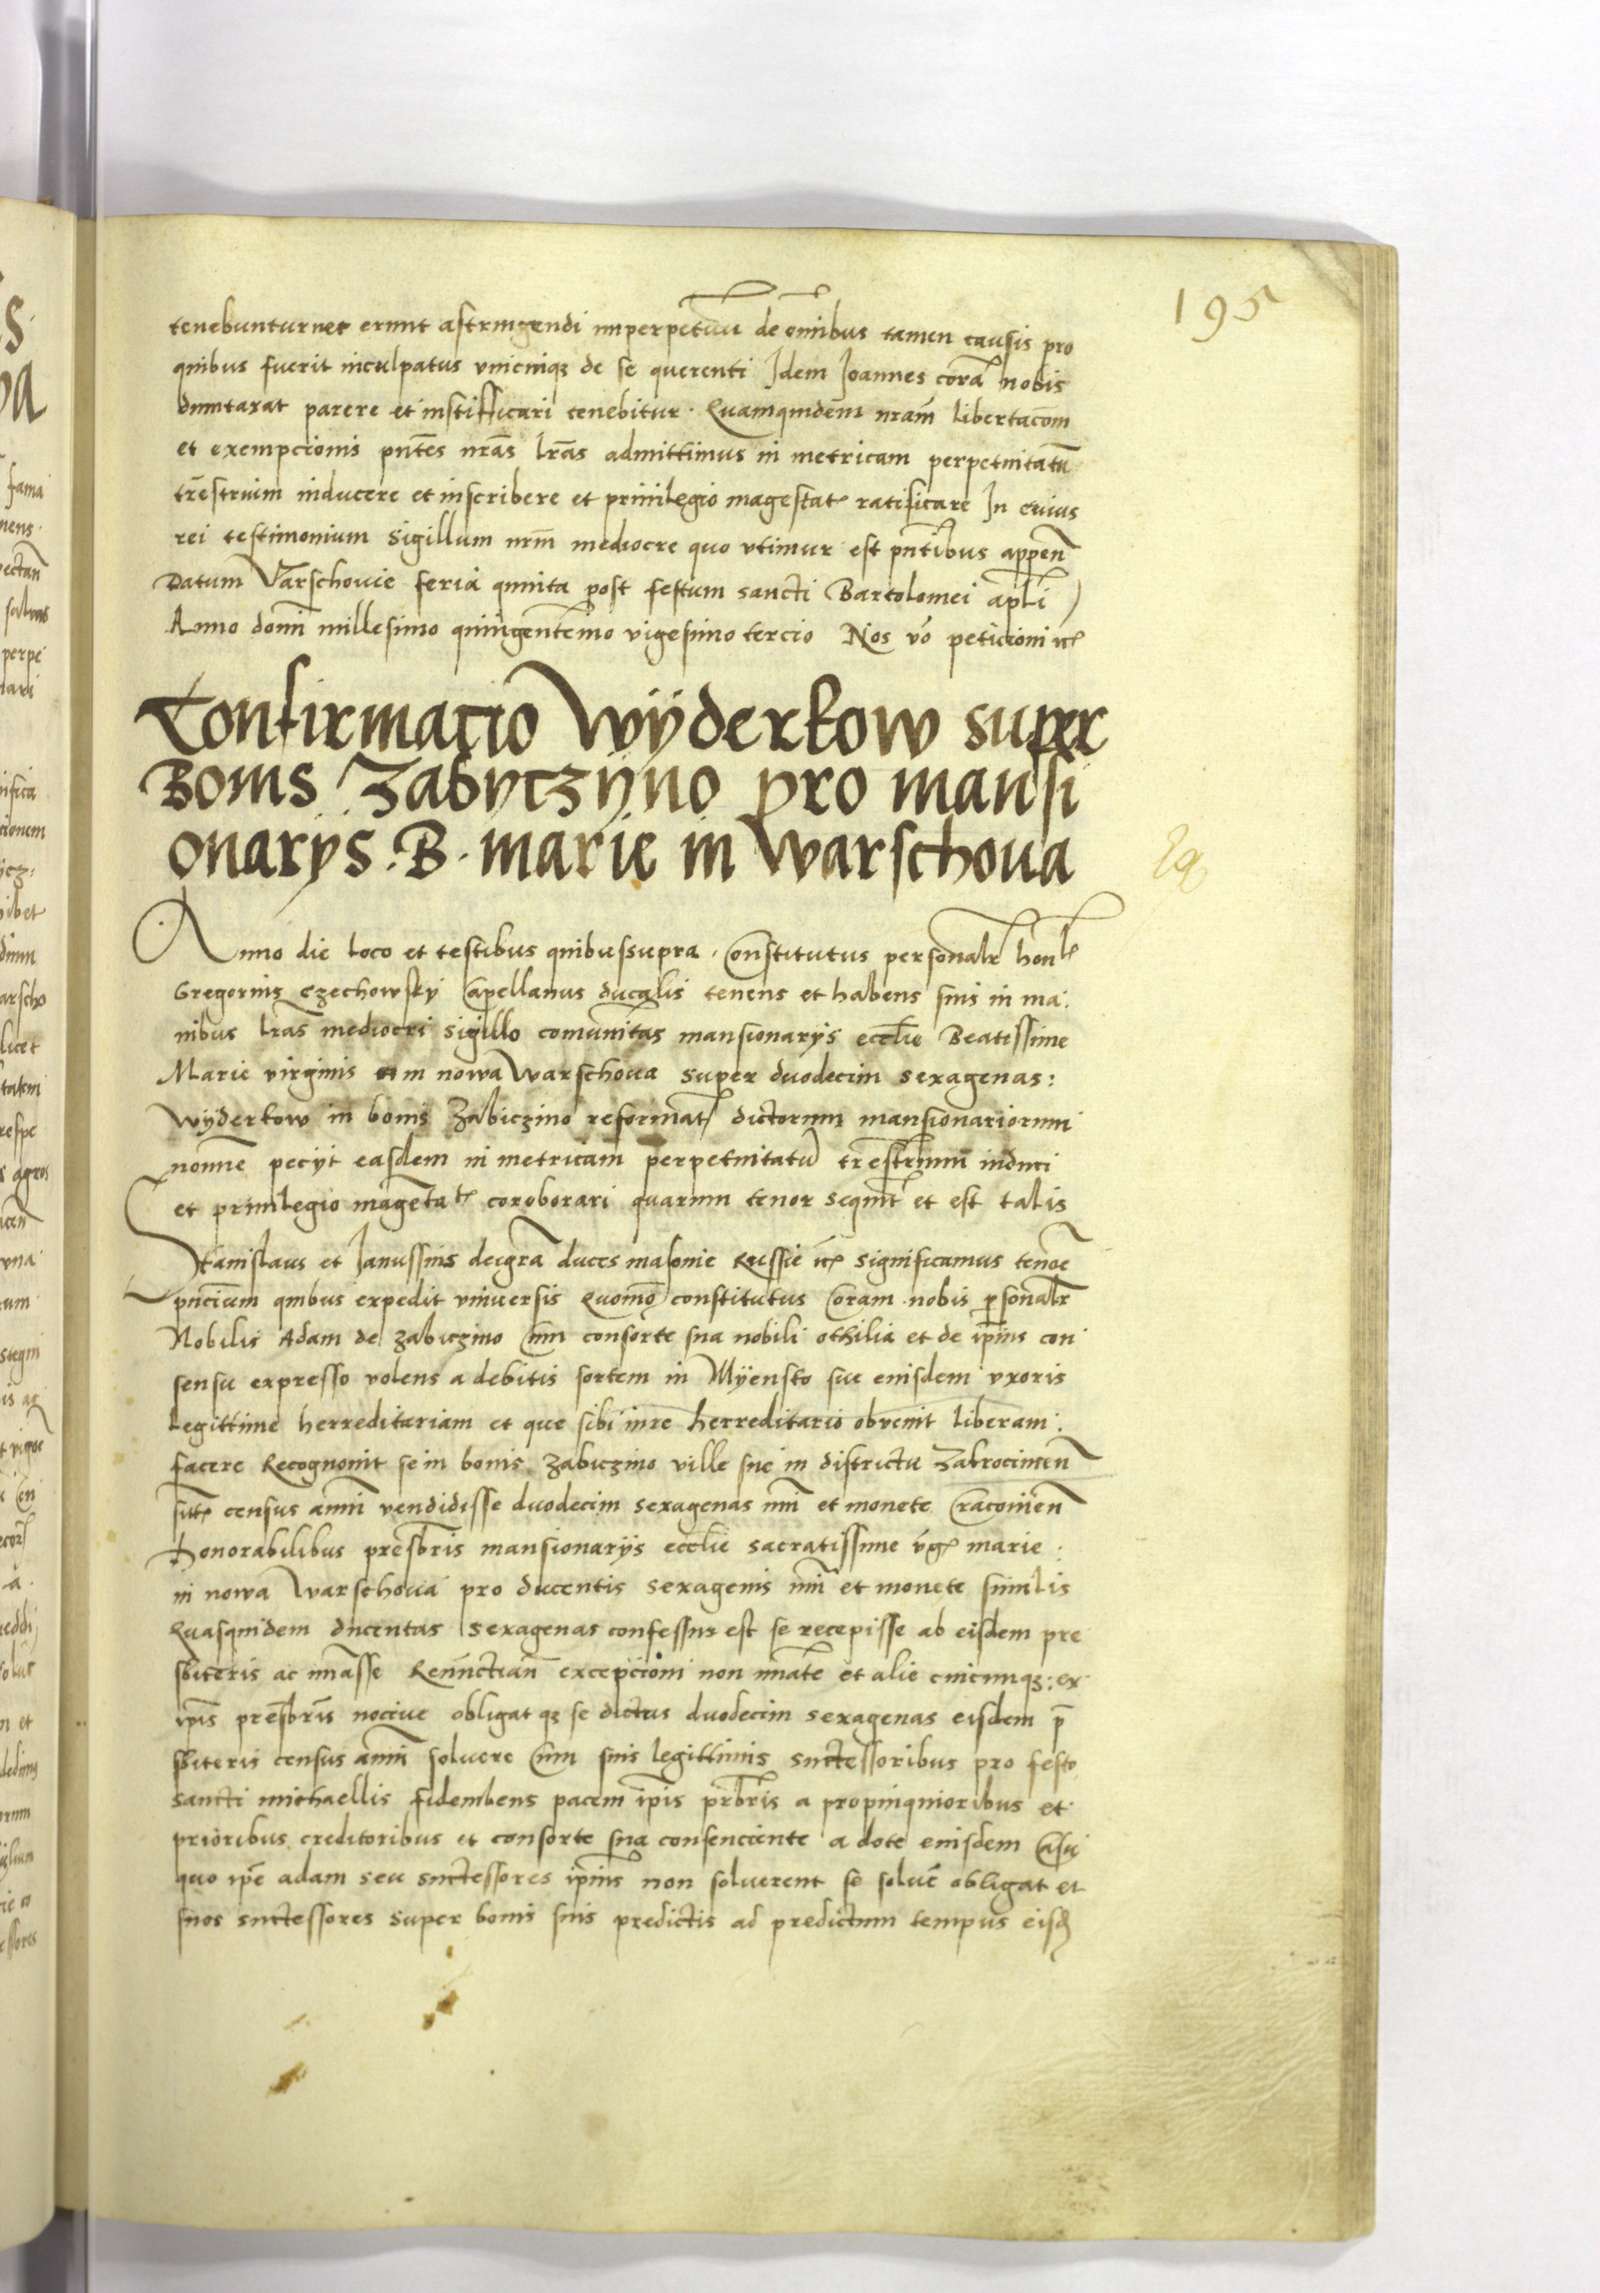 195
tenebuntur nec erunt astringendi imperpetuu de omibus tamen causis pro
quibus fuerit inculpatus unicuiq; de se querenti Idem Joannes corã nobis
dumtaxat parere et iustifficari tenebitur. Quamquidem nrãm libertacõm
et exempcionis pñtes nrãs lrãs admittimus in metricam perpetuitatũ
trestrium inducere et inscribere et priuilegio magestat ratificare In cuius
rei testimonium sigillum nrm mediocre quo vtimur est pñtibus appeñ
Datum Varschouie feria quinta post festum sancti Bartolomei apli
Anno domi millesimo quingentemo vigesimo tercio Nos vo peticioni
Confirmacio Wÿderkow super
Bonis Zabyczÿno pro mansi
onarÿs. B. marie in Warschoua
Anno die loco et testibus quibussupra. Constitutus personalr hon
Gregorius Czechowsky Capellanus ducalis tenens et habens suis in ma:
nibus lras mediocri sigillo comunitas mansionarÿs ecclie Beatissime
Marie virginis in nowa Warschoua super duodecim sexagenas:
Wÿderkow in bonis Zabiczino reformat dictorum mansionariorum
nomine peciÿt easdem in metricam perpetuitatũ trestrium induci
et priuilegio magestat coroborari quarum tenor sequit et est talis
Stanislaus et Janussius deigra duces masouie Russie significamus tenoe
pñcium quibus expedit vniuersis Quomo constitutus Coram nobis psonalr
Nobilis Adam de zabiczino Cum consorte sua nobili othilia et de ipius con
sensu expresso volens a debitis sortem in Mÿensto sue eiusdem vxoris
legittime herreditariam et que sibi iure herreditario obvenit liberam:
facere Recognouit se in bonis zabiczino ville sue in districtu Zakrocimeñ
sit census anni vendidisse duodecim sexagenas nui et monete Craconieñ
honorabilibus presbris mansionarÿs ecclie sacratissime vg marie:
in nowa Warschoua pro ducentis sexagenis nui et monete similis
Quasquidem ducentas sexagenas confessus est se recepisse ab eisdem pre
sbiteris ac iuasse Renuctiañ excepcioni non nuate et alie cuicunq;: ex
ipis presbris nociue obligat q; se dictas duodecim sexagenas eisdem p
sbiteris census anni soluere Cum suis legittimis suctessoribus pro festo
sancti michaellis fidembens pacem ipis prbris a propinquioribus et
prioribus creditoribus et consorte sua consenciente a dote eiusdem Casu
quo ipe adam seu suctessores ipius non soluerent se solue obligat et
suos suctessores super bonis suis predictis ad predictum tempus eisd